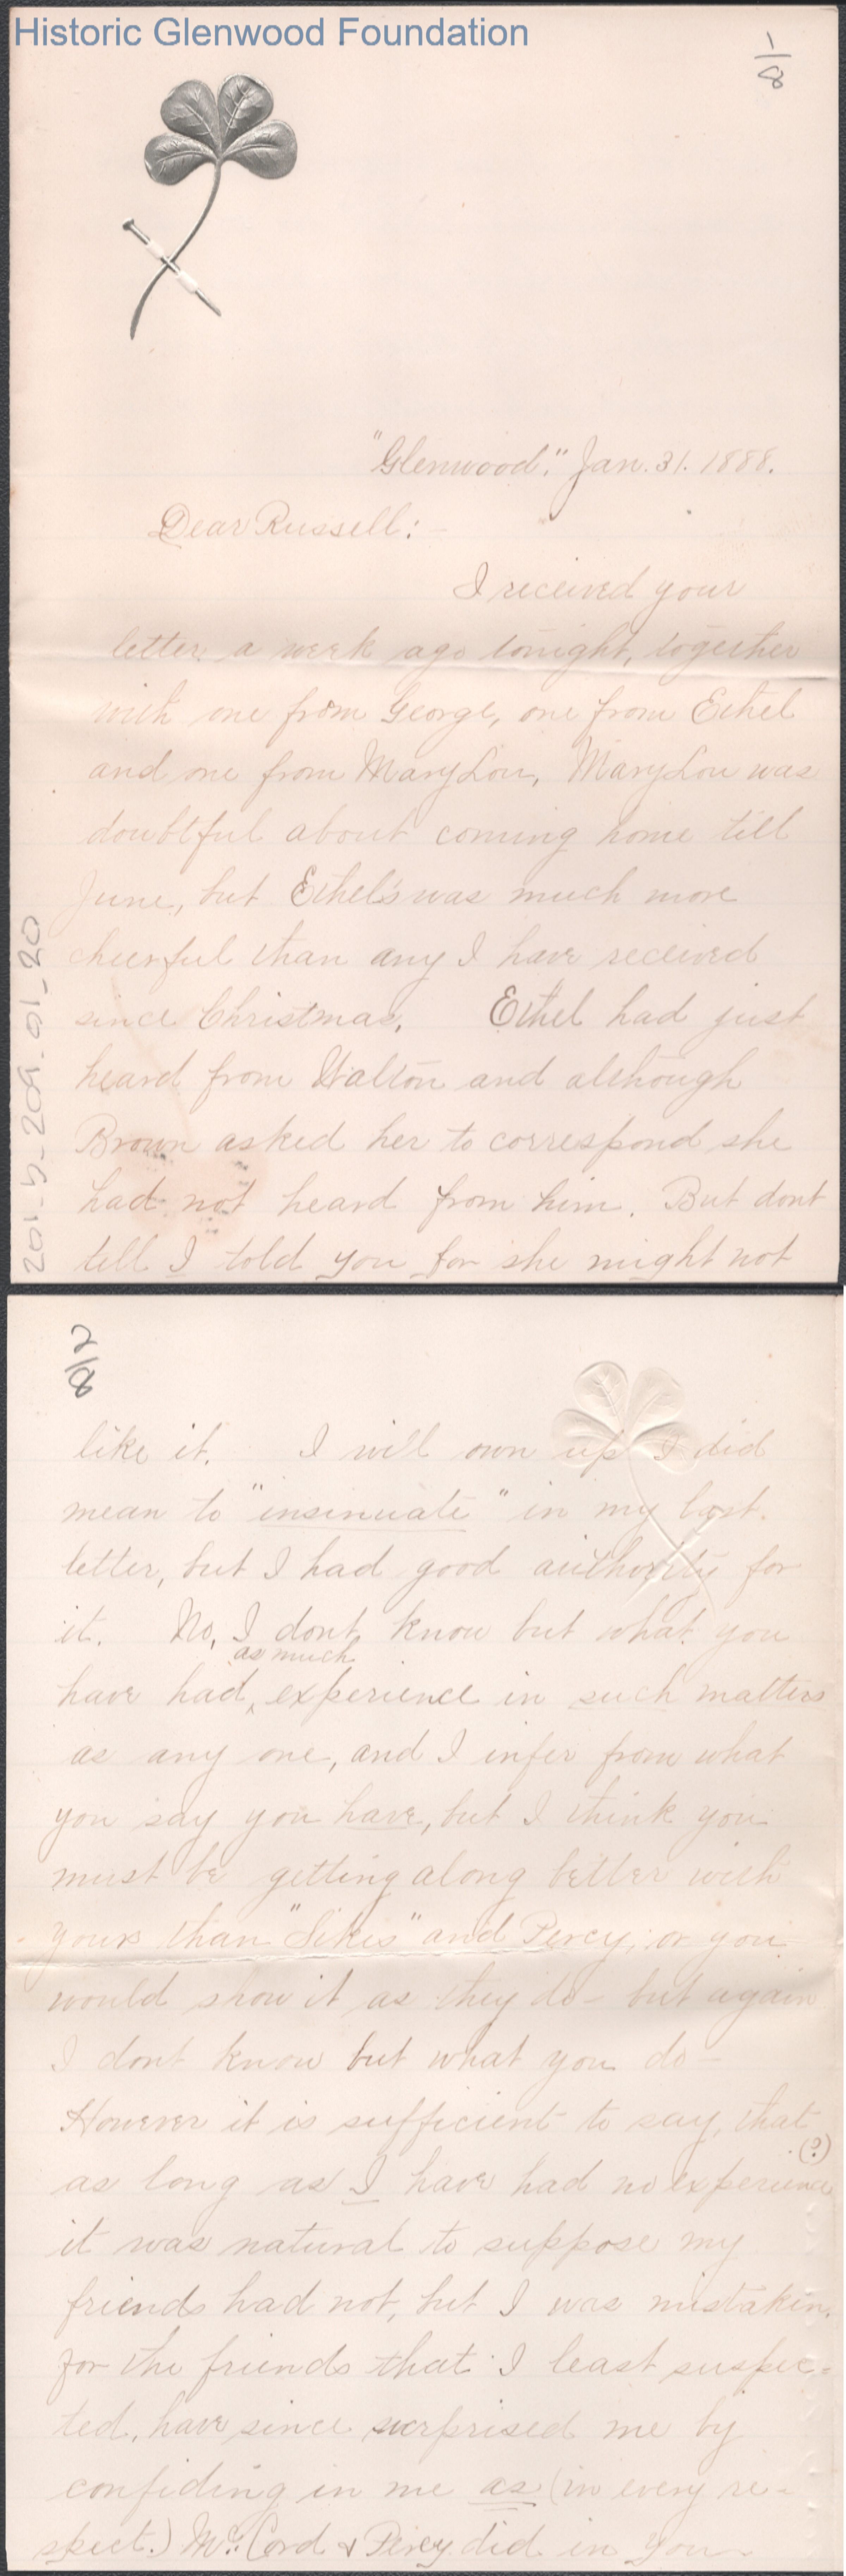 Historic Glenwood Foundation
1/8
"Glenwood." Jan. 31. 1888.
Dear Russell:-
I received your
letter a week ago tonight, together
with one from George, one from Ethel
and one from MaryLou, MaryLou was
doubtful about coming home till
June, but Ethel's was much more
cheerful than any I have received
since Christmas. Ethel had just
heard from Walton and although
Brown asked her to correspond she
had not heard from him. But dont
tell I told you for she might not
201-b-209.01-20
2/8
like it. I will own up I did
mean to "insinuate" in my last
letter, but I had good authority for
it. No, I dont know but what you
as much
have had ‸ experience in such matters
as any one, and I infer from what
you say you have, but I think you
must be getting along better with
yours than "Sikes" and Percy, or you
would show it as they do - but again
I dont know but what you do -
However it is sufficient to say, that
(?)
as long as I have had no experience
it was natural to suppose my
friends had not, but I was mistaken,
for the friends that I least suspec-
ted, have since surprised me by
confiding in me as (in every re-
spect.) Mc. Cord & Percy did in you.